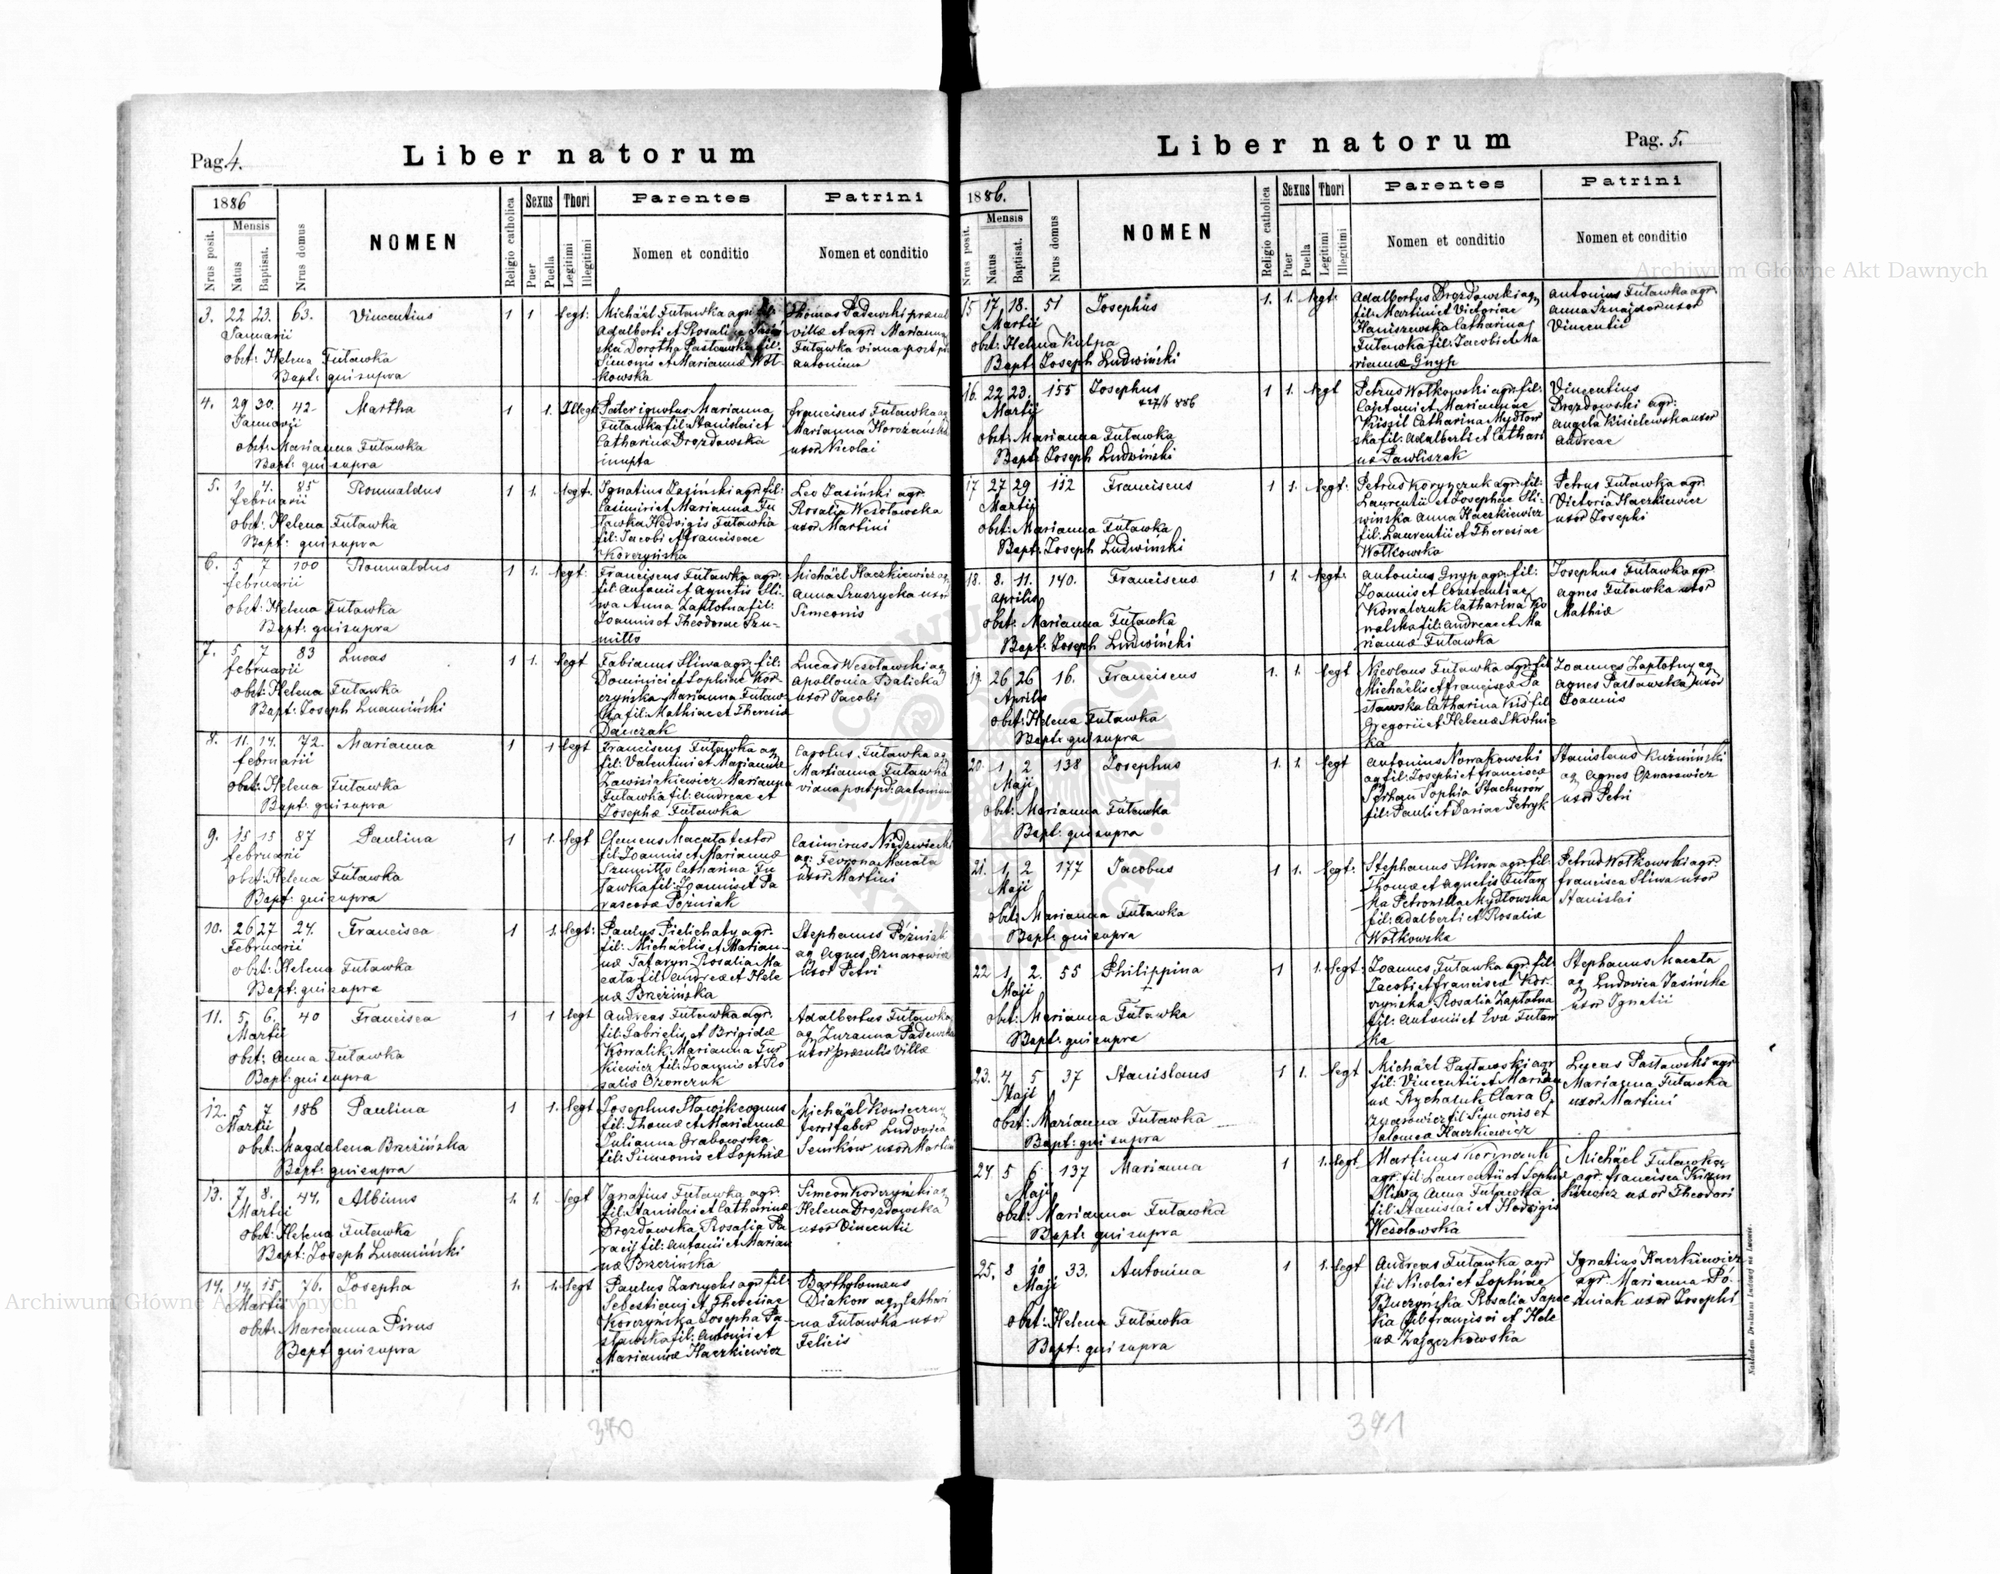 Pag. 4.
Liber natorum
1886
Nrus posit.
Mensis
Natus
Baptisat.
Nrus domus
NOMEN
Religio catholica
Sexus
Puer
Puella
Thori
Legitimi
Illegitimi
Parentes
Nomen et conditio
Patrini
Nomen et conditio
3. 22 23. 63. Vincentius 1 1 legt:
Januarii
obst: Helena Futawka
Bapt: qui supra
Michäel Futawka agr: fil:
Adalberti et Rosaliæ
Dorothea fil:
Simonis et Mariannæ Woł-
kowska
Thomas Padewski præsul
villæ et agr. Marianna
Futawka vidua post
Antonium
4. 29 30. 42. Martha 1 1. Illegt
Januarii
obst: Marianna Futawka
Bapt: qui supra
Pater ignotus Marianna
Futawka fil: Stanislai et
Catharinæ Drozdowska
inupta
Franciscus Futawka ag
Marianna
uxor Nicolai
5. 1. 4. 85 Romualdus 1 1. legt:
februarii
obst: Helena Futawka
Bapt: qui supra
Ignatius Jasiński agr: fil:
Casimiri et Mariannæ Fu
tawka Hedvigis Futawka
fil: Jacobi et Franciscae
Korczyńska
Leo Jasiński agr.
Rosalia Wesołowska
uxor Martini
6. 5 7 100 Romualdus 1 1. legt:
februarii
obst: Helena Futawka
Bapt: qui supra
Franciscus Futawka agr:
fil: Antonii et Agnetis Sli-
wa Anna Zapłotna fil:
Joannis et Theodorae Szu-
mitto
Michäel Haczkiewicz ag
Anna uxor
Simeonis
7. 5 7 83 Lucas 1 1. legt
februarii
obst: Helena Futawka
Bapt: Joseph
Fabianus Sliwa agr: fil:
Dominici et Sophiae Kor-
czyńska Marianna Futaw
ka fil: Mathiae et Theresiæ
Danczak
Lucas Wesołowski ag
Apollonia Balicka
uxor Jacobi
8. 11. 14. 72. Marianna 1 1 legt
februarii
obst: Helena Futawka
Bapt: qui supra
Franciscus Futawka ag
fil: Valentini et Mariannæ
Marianna
Futawka fil: Andreae et
Josephæ Futawka
Carolus Futawka ag
Marianna Futawka
vidua post pd: Antonium
9. 15 15 87 Paulina 1 1. legt
februarii
obst: Helena Futawka
Bapt: qui supra
Clemens Macata textor
fil: Joannis et Mariannæ
Szumitto Catharina Fu
tawka fil: Joannis et Pa
rascevæ Poźniak
Casimirus Niedzwiecki
ag: Macata
uxor Martini
10. 26 27 24. Francisca 1 1. legt:
Februarii
obst: Helena Futawka
Bapt: qui supra
Paulus Pielichaty agr.
fil: Michäelis et Marian-
næ Tataryn Rosalia Ma
cata fil: Andreæ et Hele
næ Brzezińska
Stephanus Poźniak
ag Agnes Oznarowicz
uxor Petri
11. 5 6. 40 Francisca 1 1 legt
Martii
obst: Anna Futawka
Bapt: qui supra
Andreas Futawka agr.
fil: Gabrielis et Brigidæ
Kowalik Marianna Tur
kiewicz fil: Joannis et Ro
saliæ
Adalbertus Futawka
ag Zuzanna Padewska
uxor præsulis villæ
12. 5 7 186 Paulina 1 1. legt
Martii
obst: Magdalena Brzezińska
Bapt: qui supra
Josephus Stawik
fil: Thomæ et Mariannæ
Julianna Grabowska
fil: Simeonis et Sophiæ
Michäel Konieczny
ferrifaber Ludovica
Senków uxor Martini
13. 7 8. 44. Albinus 1. 1. legt
Martii
obst: Helena Futawka
Bapt: Joseph
Ignatius Futawka agr.
fil: Stanislai et Catharinæ
Drozdowska Rosalia Pa
racij fil: Antonii et Marian
næ Brzezińska
Simeon Korczyński ag
Helena Drozdowska
uxor Vincentii
14. 14 15 76. Josepha 1. 1. legt
Martii
obst: Marianna Pirus
Bapt qui supra
Paulus Zarycki agr fil:
Sebastiani et Theresiae
Korczyńska Josepha Pa
stawska fil: Antonii et
Mariannæ Haczkiewicz
Bartholomæus
Diakow agr Cathari
na Futawka uxor
Felicis
340
Liber natorum
Pag. 5.
1886.
Nrus posit.
Mensis
Natus
Baptisat.
Nrus domus
NOMEN
Religio catholica
Sexus
Puer
Puella
Thori
Legitimi
Illegitimi
Parentes
Nomen et conditio
Patrini
Nomen et conditio
15 17 18. 51 Josephus 1. 1. legt:
Martii
obst: Helena Kulpa
Bapt: Joseph Ludwiński
Adalbertus Drozdowski ag
fil: Martini et Victoriae
Haniszewska Catharina
Futawka fil: Jacobi et Ma
riannæ Gnyp
Antonius Futawka agr.
Anna uxor
Vincentii
16. 22 23. 155 Josephus 1 1. legt
Martii
obst: Marianna Futawka
Bapt: Joseph Ludwiński
Petrus Wołkowski agr: fil:
Cajetani et Mariannae
Kissil Catharina Mydłow
ska fil: Adalberti et Cathari
næ Pawliszak
Vincentius
Drozdowski agr:
Angela Kisielewska uxor
Andreae
17 27 29 112 Franciscus 1 1. legt:
Martij
obst: Marianna Futawka
Bapt: Joseph Ludwiński
Petrus Korynczuk agr: fil:
Laurentii et Josephae Sli-
wińska Anna Haczkiewicz
fil: Laurentii et Theresiae
Wołkowska
Petrus Futawka agr:
Victoria Haczkiewicz
uxor Josephi
18. 8. 11. 140. Franciscus 1 1. legt:
Aprilis
obst: Marianna Futawka
Bapt: Joseph Ludwiński
Antonius Gnyp agr: fil:
Joannis et Constantiae
Kowalczuk Catharina Ko
walska fil: Andreae et Ma
riannæ Futawka
Josephus Futawka agr
Agnes Futawka uxor
Mathiæ
19. 26 26 16. Franciscus 1. 1. legt
Aprilis
obst: Helena Futawka
Bapt: qui supra
Nicolaus Futawka agr: fil
Michäelis et Franciscæ Pa
stawska Catharina Kis fil
Gregorii et Helenæ Skolnic
ka
Joannes Zapłotny ag
Agnes Pastawska uxor
Joannis
20. 1. 2 138 Josephus 1. 1. legt
Maji
obst: Marianna Futawka
Bapt: qui supra
Antonius Nowakowski
ag fil: Josephi et Franciscæ
Sophia Stachurow
fil: Pauli et Dariae Petryk
Stanislaus Kuźmiński
ag Agnes Oznarowicz
uxor Petri
21. 1. 2 177 Jacobus 1 1. legt:
Maji
obst: Marianna Futawka
Bapt: qui supra
Stephanus Sliwa agr: fil:
Thomæ et Agnetis Futaw
ka Petronilla Mydłowska
fil: Adalberti et Rosaliæ
Wołkowska
Petrus Wołkowski agr.
Francisca Sliwa uxor
Stanislai
22 1. 2. 55 Philippina 1 1. legt:
Maji
obst: Marianna Futawka
Bapt: qui supra
Joannes Futawka agr: fil:
Jacobi et Franciscæ Kor-
czyńska Rosalia Zapłotna
fil: Antonii et Evæ Futaw
ka
Stephanus Macata
ag Ludovica Jasińska
uxor Ignatii
23. 4. 5 37 Stanislaus 1 1. legt
Maji
obst: Marianna Futawka
Bapt: qui supra
Michäel Pastawski agr
fil: Vincentii et Marian
næ Rychalzuk Clara O
znarowicz fil: Simonis et
Salomea Haczkiewicz
Lucas Pastawski agr
Marianna Futawka
uxor Martini
24. 5 6. 137 Marianna 1 1. legt
Maji
obst: Marianna Futawka
Bapt: qui supra
Martinus Korynczuk
agr. fil: Laurentii et Sophiæ
Sliwa Anna Futawka
fil: Stanislai et Hedvigis
Wesołowska
Michäel Futawka
agr: Francisca
uxor Theodori
25. 8 10 33. Antonina 1 1. legt
Maji
obst: Helena Futawka
Bapt: qui supra
Andreas Futawka agr
fil Nicolai et Sophiae
Buczyńska Rosalia
fil: Francisci et Hele
næ Zajączkowska
Ignatius Haczkiewicz
agr. Marianna Po-
zniak uxor Josephi
Nakładem Drukarni Ludowej we Lwowie.
341
Archiwum Główne Akt Dawnych
Archiwum Główne Akt Dawnych